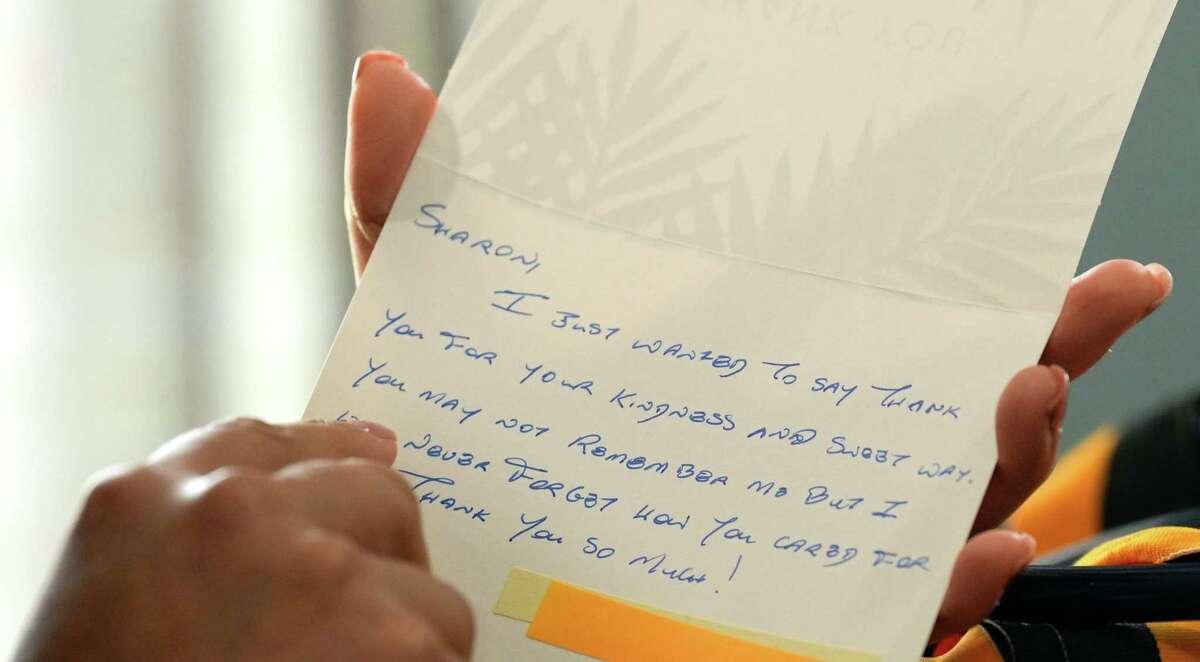 SHARON,
I JUST WANTED TO SAY THANK
YOU FOR YOUR KINDNESS AND SWEET WAY.
YOU MAY NOT REMEMBER ME BUT I
NEVER FORGET HOW YOU CARED FOR
THANK YOU SO MUCH!